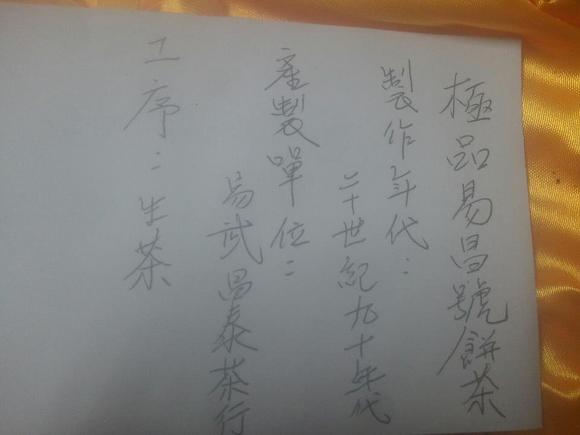 極品易昌號餅茶
製作年代：
二十世紀九十年代
產製單位：
易武昌泰茶行
工序：生茶